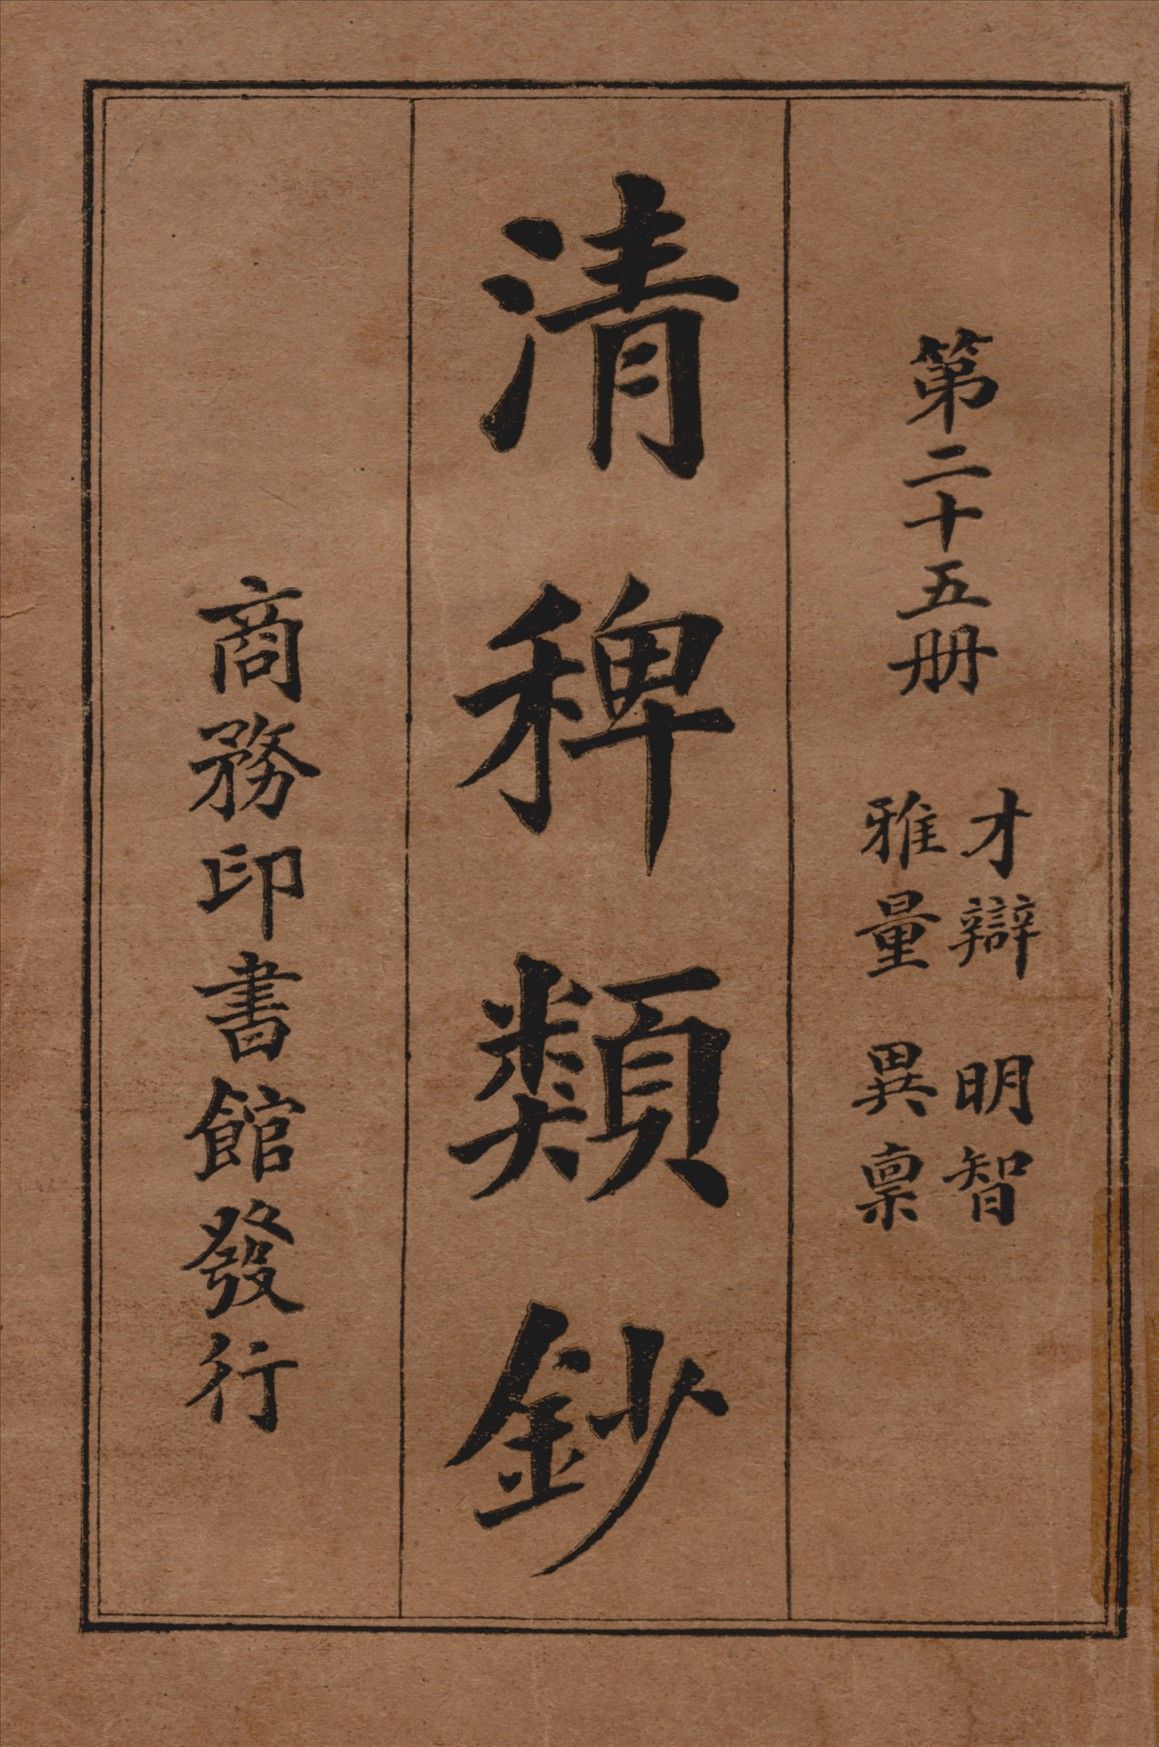 第二十五册
才辯 明智
雅量 異稟
清稗類鈔
商務印書館發行